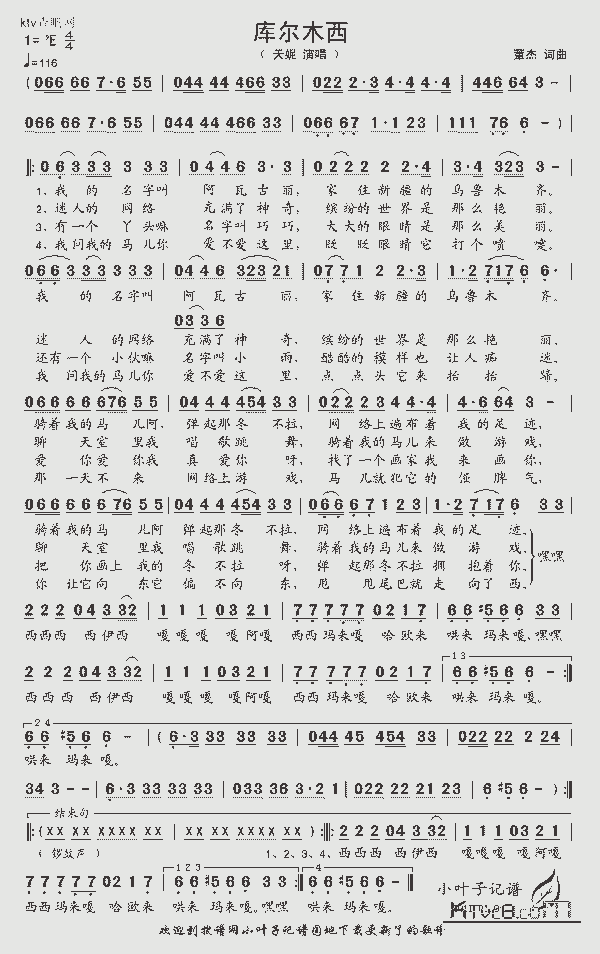 库尔木西
1= ♭E 4/4
（ 天妮 演唱 ）
♩=116
董杰 词曲
(066 66 7·6 55 | 044 44 66 33 | 022 2·3 4·4 4·4 | 446 64 3 - |
066 66 7·6 55 | 044 44 466 33 | 066 67 1·1 23 | 111 76 6 - ) |
‖: 0 6 3 3 3 3 33 | 0446 3·3 | 0222 2 2·4 | 3·4 323 3 - |
1、我 的 名字叫 阿瓦古丽， 家 住新疆的 乌鲁木 齐。
2、迷人的 网络 充满了神奇， 缤纷的世界是 那么艳 丽。
3、有一个 丫头嘛 名字叫巧巧， 大大的眼睛是 那么美 丽。
4、我问我的马儿你 爱不爱这里， 眨眨眼睛它 打个喷 嚏。
066 3 3 3 3 33 | 044 46 323 21 | 077 1 2 2·3 | 1·2 7176 6· |
我 的 名字叫 阿瓦古 丽， 家 住新疆的 乌鲁木 齐。
03 3 6
迷 人 的网络 充满了神 奇， 缤纷的世界是 那么艳 丽，
还有一个 小伙嘛 名字叫小 雨， 酷酷的模样也 让人痴 迷，
我 问我的马儿你 爱不爱这 里， 点点头它来 抬抬 蹄，
066 66 676 55 | 044 44 454 33 | 0222 2344 | 4·6 643 - |
骑着我的马 儿阿， 弹起那冬 不拉， 网 络上遍布着 我的足 迹，
聊 天室 里我 唱歌跳 舞， 骑着我的马儿来 做 游 戏，
爱 你爱 你我 真爱你 呀， 找了一个画家我 来 画 你，
那 一天不 来 网络上游 戏， 马儿就犯它的 倔 脾 气，
066 66 676 55 | 044 44 454 33 | 066 67 123 | 1·2 717 6 33 |
骑着我的马 儿阿 弹起那冬 不拉， 网 络上遍布着 我的足 迹，
聊 天室 里我 唱歌跳 舞， 骑着我的马儿来 做 游 戏，
嘿嘿
把 你画上 我的 冬 不拉 呀， 弹 起那冬不拉 拥 抱着 你，
你 让它向 东它 偏 不向 东， 甩 甩尾巴就走 向了西，
2 2 2 04332 | 1 1 1 0321 | 77777 0217 | 66 #566 33 |
西西西 西伊西 嘎嘎嘎 嘎阿嘎 西西玛来嘎 哈欧来 哄来 玛来嘎，嘿嘿
2 2 2 04332 | 1 1 1 0321 | 77777 0217 | 66 #566 - :‖
西西西 西伊西 嘎嘎嘎 嘎阿嘎 西西玛来嘎 哈欧来 哄来 玛来嘎。
66 #56 6 - | ( 6·3 33 33 33 | 044 45 454 33 | 022 22 2 24 |
哄来 玛来嘎。
34 3 - - | 6·3 33 33 33 | 033 36 3·2 1 | 022 22 21 23 | 6 #56 6 - ) :‖
结束句
‖: (XX XX XXXX XX | XX XX XXXX XX ) :‖: 2 2 2 04332 | 1 1 1 0321 |
（ 锣鼓声 ） 1、2、3、4、西西西 西伊西 嘎嘎嘎 嘎阿嘎
77777 0217 | 66 #566 33 :‖ 66 #566 - ‖
西西玛来嘎 哈欧来 哄来 玛来嘎。嘿嘿 哄来 玛来嘎。
小叶子记谱
KTVC8.COM